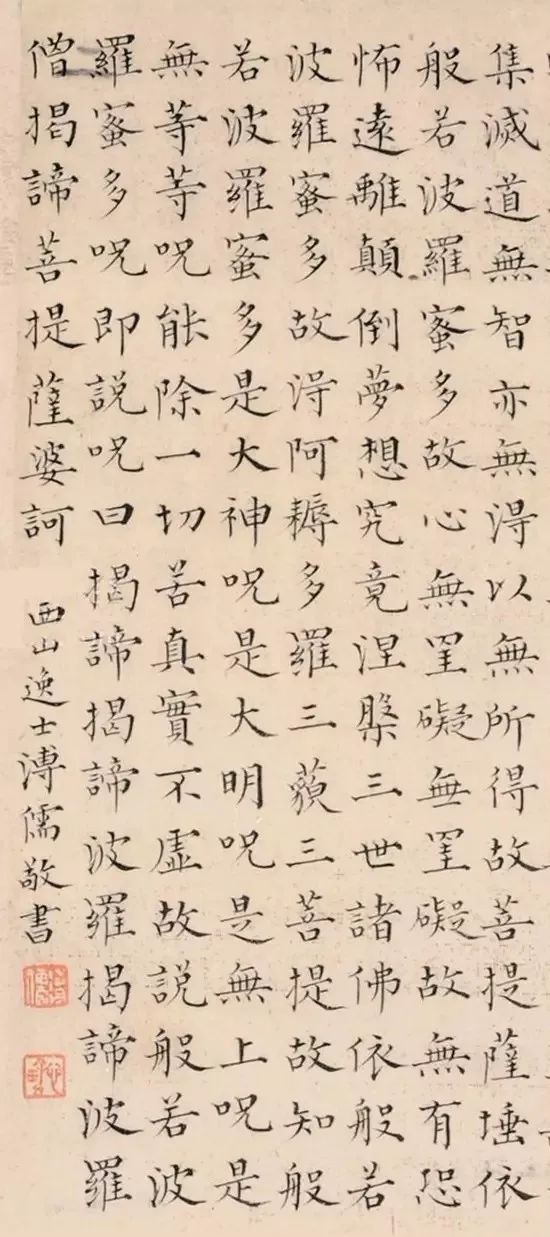 集滅道無智亦無淂以無所得故菩提薩埵依
般若波羅蜜多故心無罣礙無罣礙故無有恐
怖遠離顛倒夢想究竟涅槃三世諸佛依般若
波羅蜜多故淂阿耨多羅三藐三菩提故知般
若波羅蜜多是大神呪是大明呪是無上呪是
無等等呪能除一切苦真實不虛故説般若波
羅蜜多呪即説呪曰揭諦揭諦波羅揭諦波羅
僧揭諦菩提薩婆訶
西山逸士溥儒敬書
溥儒